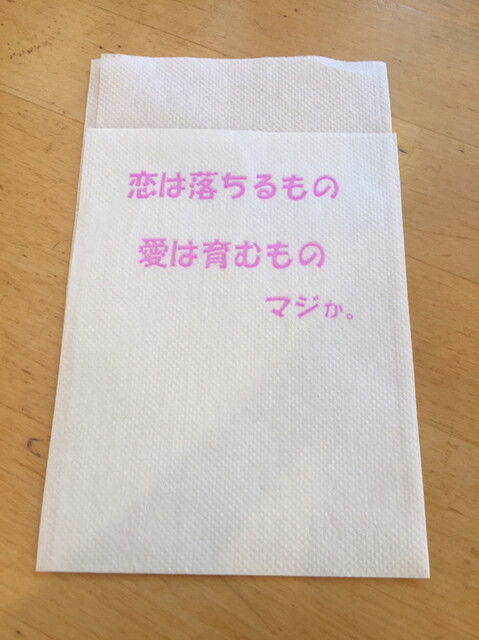 恋は落ちるもの
愛は育むもの
マジか。